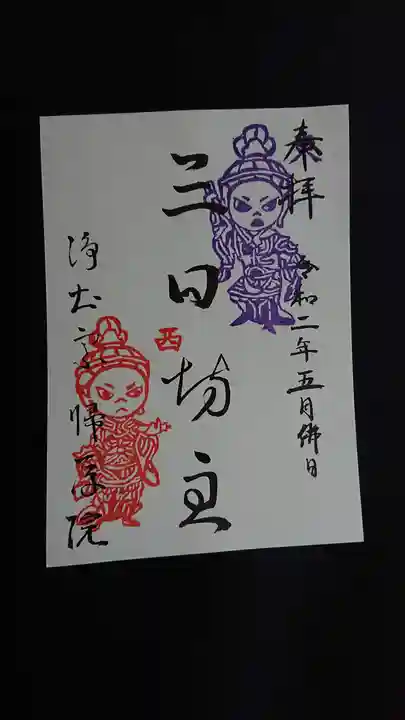 奉拝
令和二年五月佛日
三日坊主
西
浄土宗帰命院